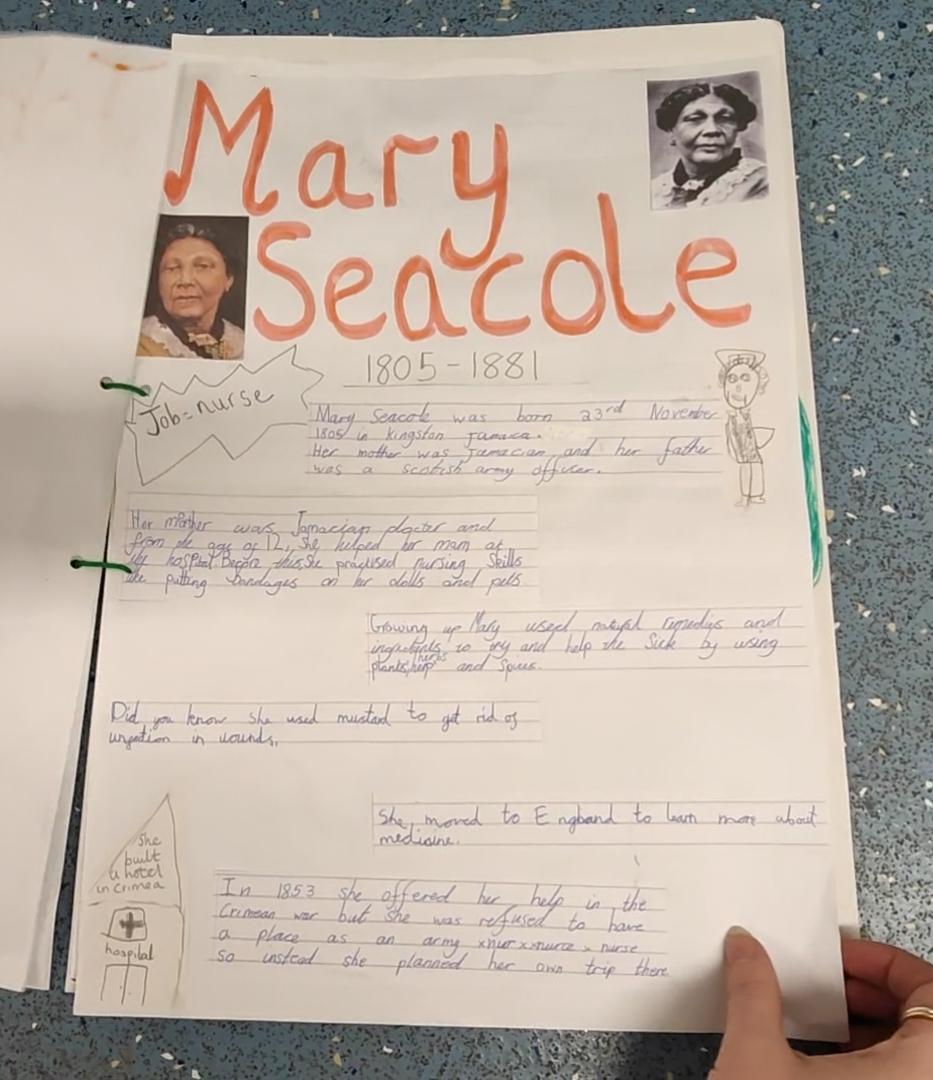 Mary
Seacole
1805-1881
Job=nurse
Mary Seacole was born 23rd November
1805 in kingston Jamaca.
Her mother was Jamacian and her father
was a scotish army officer.
Her mother was Jamacian docter and
from the age of 12, she helped her mom at
hospital. Before this, She practised nursing Skills
like putting bandages on her dolls and pets
Growing up Mary used natural remedys and
to try and help the Sick by using
plants, herbs and Spices.
Did you know she used mustard to get rid of
in wounds.
She moved to England to learn more about
medicine.
She
built
a hotel
in crimea
hospital
In 1853 she offered her help in the
Crimean war but she was refused to have
a place as an army nurse
so instead she planned her own trip there